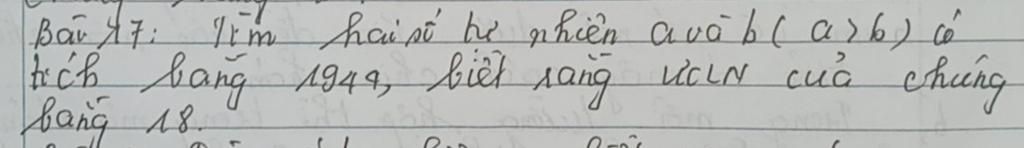 Bài 17: Tìm hai số tự nhiên a và b (a > b) có
tích bằng 1944, biết rằng ƯCLN của chúng
bằng 18.